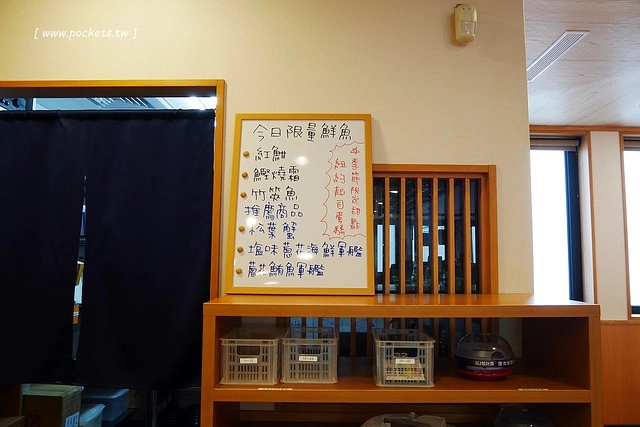 [ www.pockets.tw ]
今日限量鮮魚
紅魽
鰹燒霜
竹筴魚
推薦商品
松葉蟹
塩味蔥花海鮮軍艦
蔥花鮪魚軍艦
季節限定甜點
紐約起司蛋糕